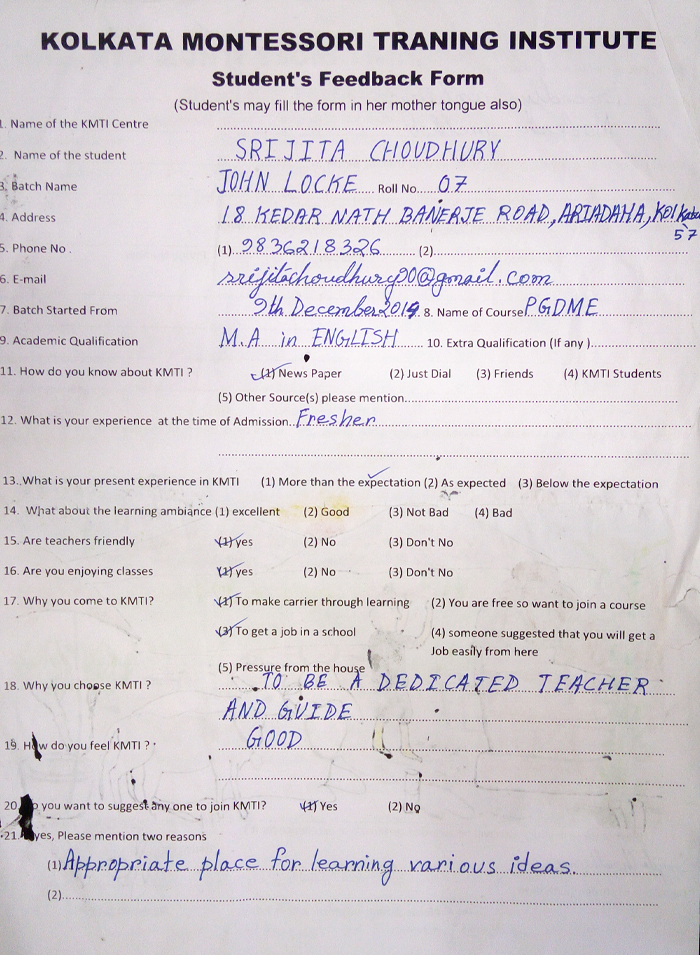 KOLKATA MONTESSORI TRANING INSTITUTE
Student's Feedback Form
(Student's may fill the form in her mother tongue also)
1. Name of the KMTI Centre
2. Name of the student SRIJITA CHOUDHURY
3. Batch Name JOHN LOCKE Roll No 07
4. Address 18 KEDAR NATH BANERJE ROAD, ARIADAHA, Kolkata
57
5. Phone No. (1) 9836218326 (2)
6. E-mail srijitachoudhury90@gmail.com
7. Batch Started From 9th December 2019 8. Name of Course PGDME
9. Academic Qualification M.A in ENGLISH 10. Extra Qualification (If any )
11. How do you know about KMTI ? (1) News Paper (2) Just Dial (3) Friends (4) KMTI Students
(5) Other Source(s) please mention
12. What is your experience at the time of Admission Fresher
13. What is your present experience in KMTI (1) More than the expectation (2) As expected (3) Below the expectation
14. What about the learning ambiance (1) excellent (2) Good (3) Not Bad (4) Bad
15. Are teachers friendly (1) yes (2) No (3) Don't No
16. Are you enjoying classes (1) yes (2) No (3) Don't No
17. Why you come to KMTI? (1) To make carrier through learning (2) You are free so want to join a course
(3) To get a job in a school (4) someone suggested that you will get a
Job easily from here
(5) Pressure from the house
18. Why you choose KMTI ? TO BE A DEDICATED TEACHER
AND GUIDE
19. How do you feel KMTI ? GOOD
20. you want to suggest any one to join KMTI? (1) Yes (2) No
21. yes, Please mention two reasons
(1) Appropriate place for learning various ideas.
(2)